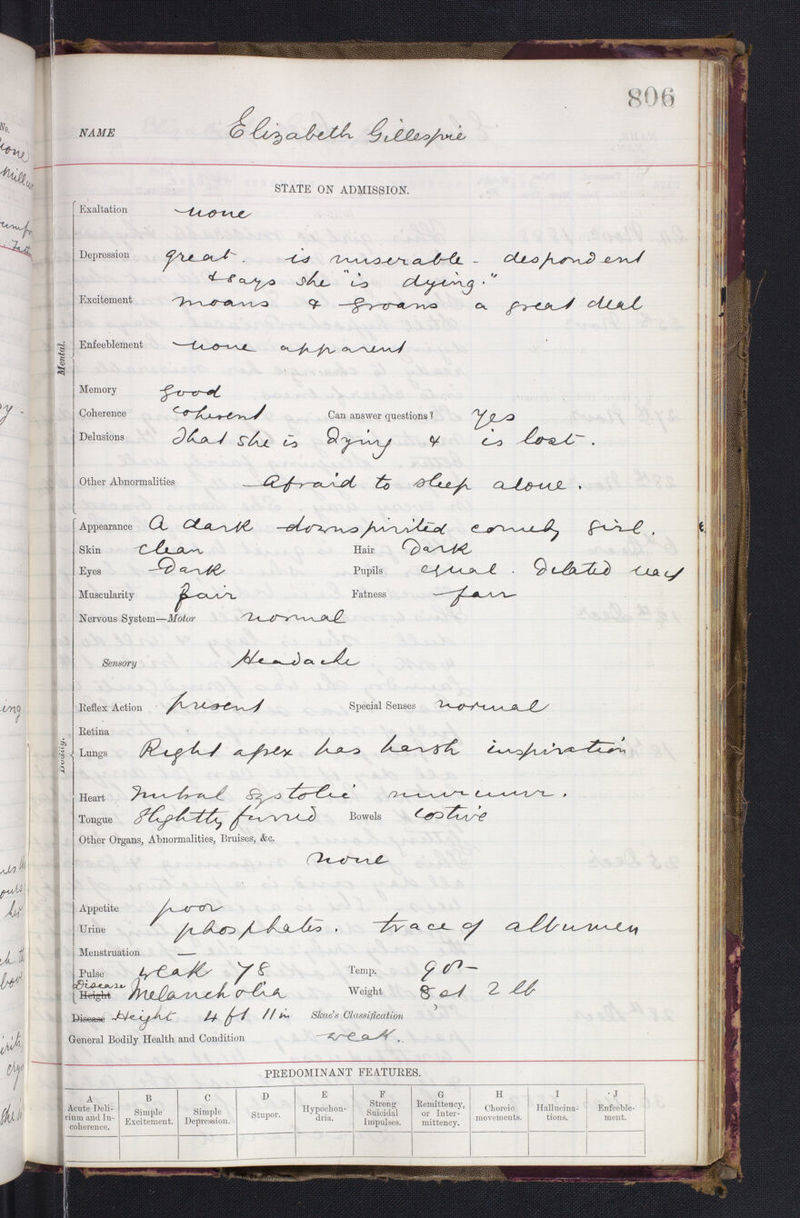 806
NAME Elizabeth Gillespie
STATE ON ADMISSION.
Mental.
Exaltation none
Depression great. is miserable - despondent
& says she "is dying."
Excitement moans & groans a great deal
Enfeeblement none apparent
Memory good
Coherence coherent Can answer questions? Yes
Delusions That she is dying & is lost.
Other Abnormalities Afraid to sleep alone.
Bodily.
Appearance A dark downspirited comely girl.
Skin clean Hair Dark
Eyes Dark Pupils equal. Dilated
Muscularity fair Fatness fair
Nervous System—Motor normal
Sensory Headache
Reflex Action present Special Senses normal
Retina
Lungs Right apex has harsh inspiration
Heart Mitral systolic murmur.
Tongue Slightly furred Bowels costive
Other Organs, Abnormalities, Bruises, &c.
none
Appetite poor
Urine phosphates. trace of albumen
Menstruation —
Pulse weak 78 Temp.
Disease
Height Melancholia Weight 8 st 2 lb
Disease Height 4 ft 11 in Skae's Classification
General Bodily Health and Condition weak.
PREDOMINANT FEATURES.
A B C D E F G H I J
Acute Delirium and Incoherence. Simple Excitement. Simple Depression. Stupor. Hypochondria. Strong Suicidal Impulses. Remittency, or Intermittency. Choreic movements. Hallucinations. Enfeeblement.